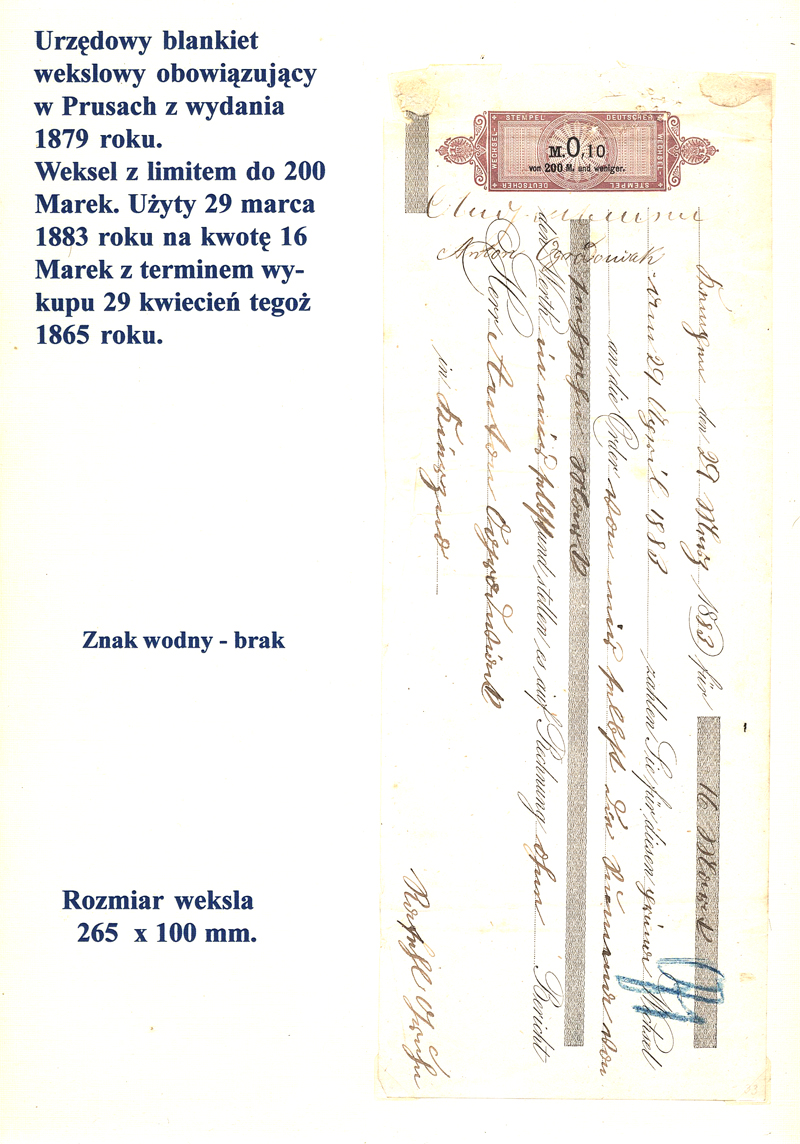 Urzędowy blankiet
wekslowy obowiązujący
w Prusach z wydania
1879 roku.
Weksel z limitem do 200
Marek. Użyty 29 marca
1883 roku na kwotę 16
Marek z terminem wy-
kupu 29 kwiecień tegoż
1865 roku.
Znak wodny - brak
Rozmiar weksla
265 x 100 mm.
STEMPEL DEUTSCHER
WECHSEL-
WECHSEL-
M.0,10
von 200 M. und weniger.
DEUTSCHER STEMPEL
Anton Ogrodowiak
den 29 März 1883 für 16 Mark
29 April 1883 zahlen Sie für diesen Wechsel
an die Order von mir selbst die Summe von
Mark
den Werth in mir selbst und stellen es auf Rechnung ohne Bericht
Herrn Anton
in